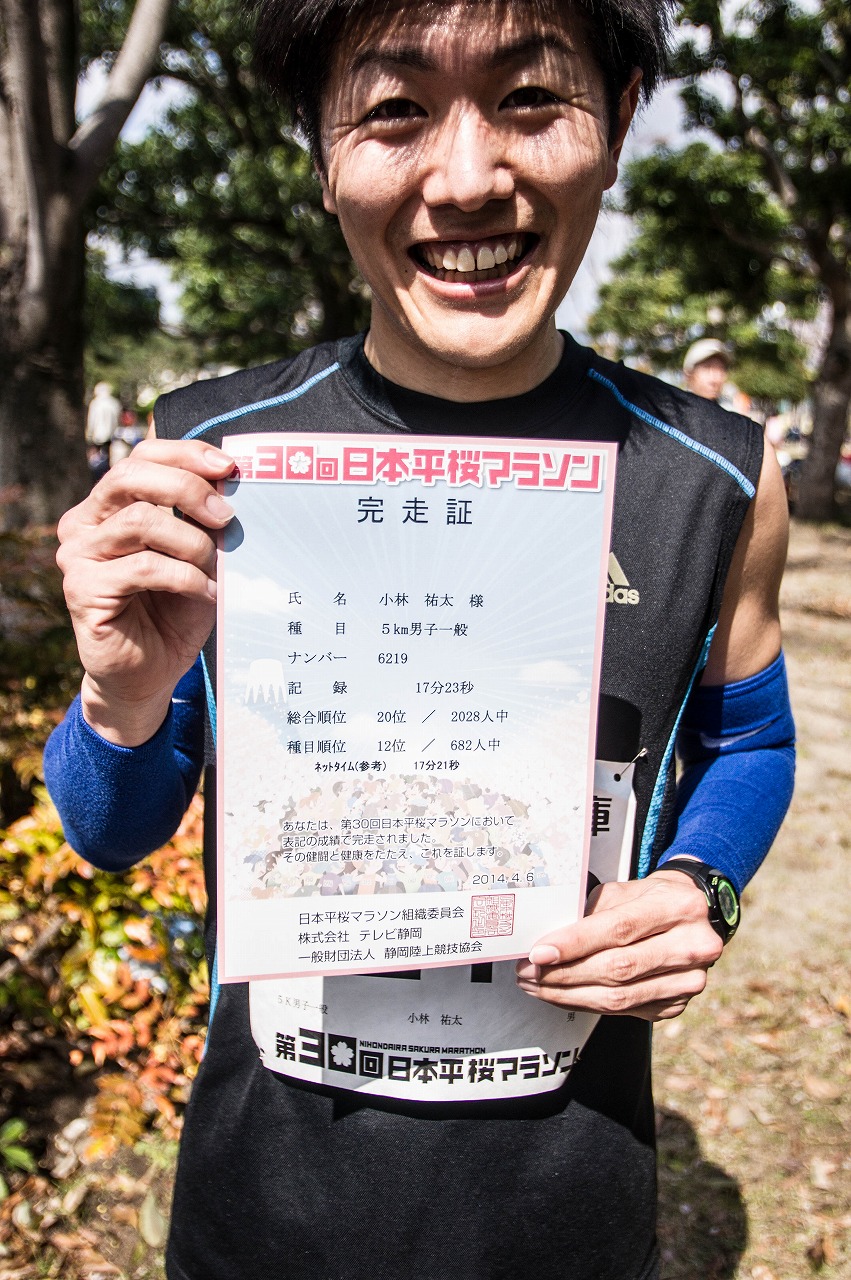 第30回日本平桜マラソン
完走証
氏 名 小林 祐太 様
種 目 5km男子一般
ナンバー 6219
記 録 17分23秒
総合順位 20位 / 2028人中
種目順位 12位 / 682人中
ネットタイム(参考) 17分21秒
あなたは、第30回日本平桜マラソンにおいて
表記の成績で完走されました。
その健闘と健康をたたえ、これを証します。
2014.4.6
日本平桜マラソン組織委員会
株式会社 テレビ静岡
一般財団法人 静岡陸上競技協会
adidas
庫
5K男子一般
小林 祐太
男
NIHONDAIRA SAKURA MARATHON
第30回日本平桜マラソン